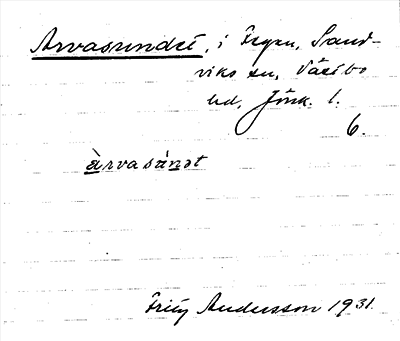 Arvasundet, i Fegen, Sand-
viks sn, Västbo
hd, Jönk. l.
6.
àrvasúnət
Fritz Andersson 1931.